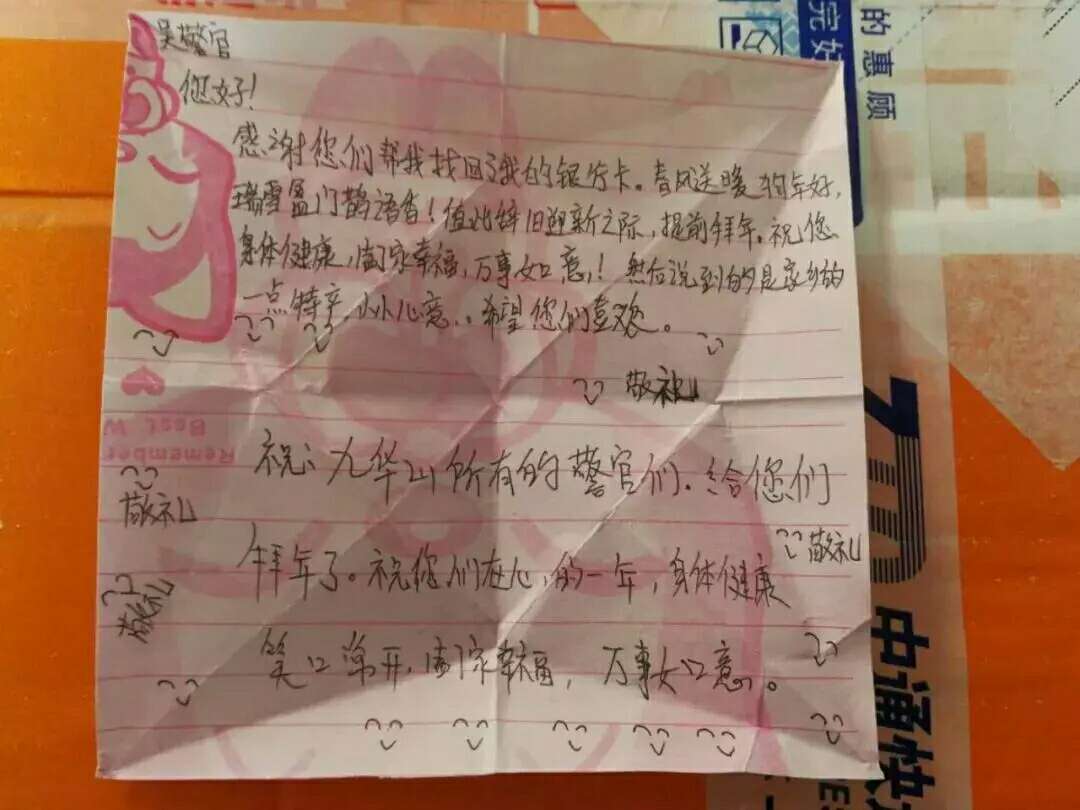 吴警官
您好!
感谢您们帮我找回了我的银行卡。春风送暖狗年好,
瑞雪盈门鹊语香!值此辞旧迎新之际,提前拜年。祝您
身体健康,阖家幸福,万事如意!然后说到的是家乡的
一点特产,小小心意..希望您们喜欢。
敬礼
祝:九华山所有的警官们.给您们
敬礼
敬礼
拜年了。祝您们在心,的一年,身体健康
敬礼
笑口常开,阖家幸福,万事如意。
Remember
Best W
的惠顾
完好
ZTO
中通快